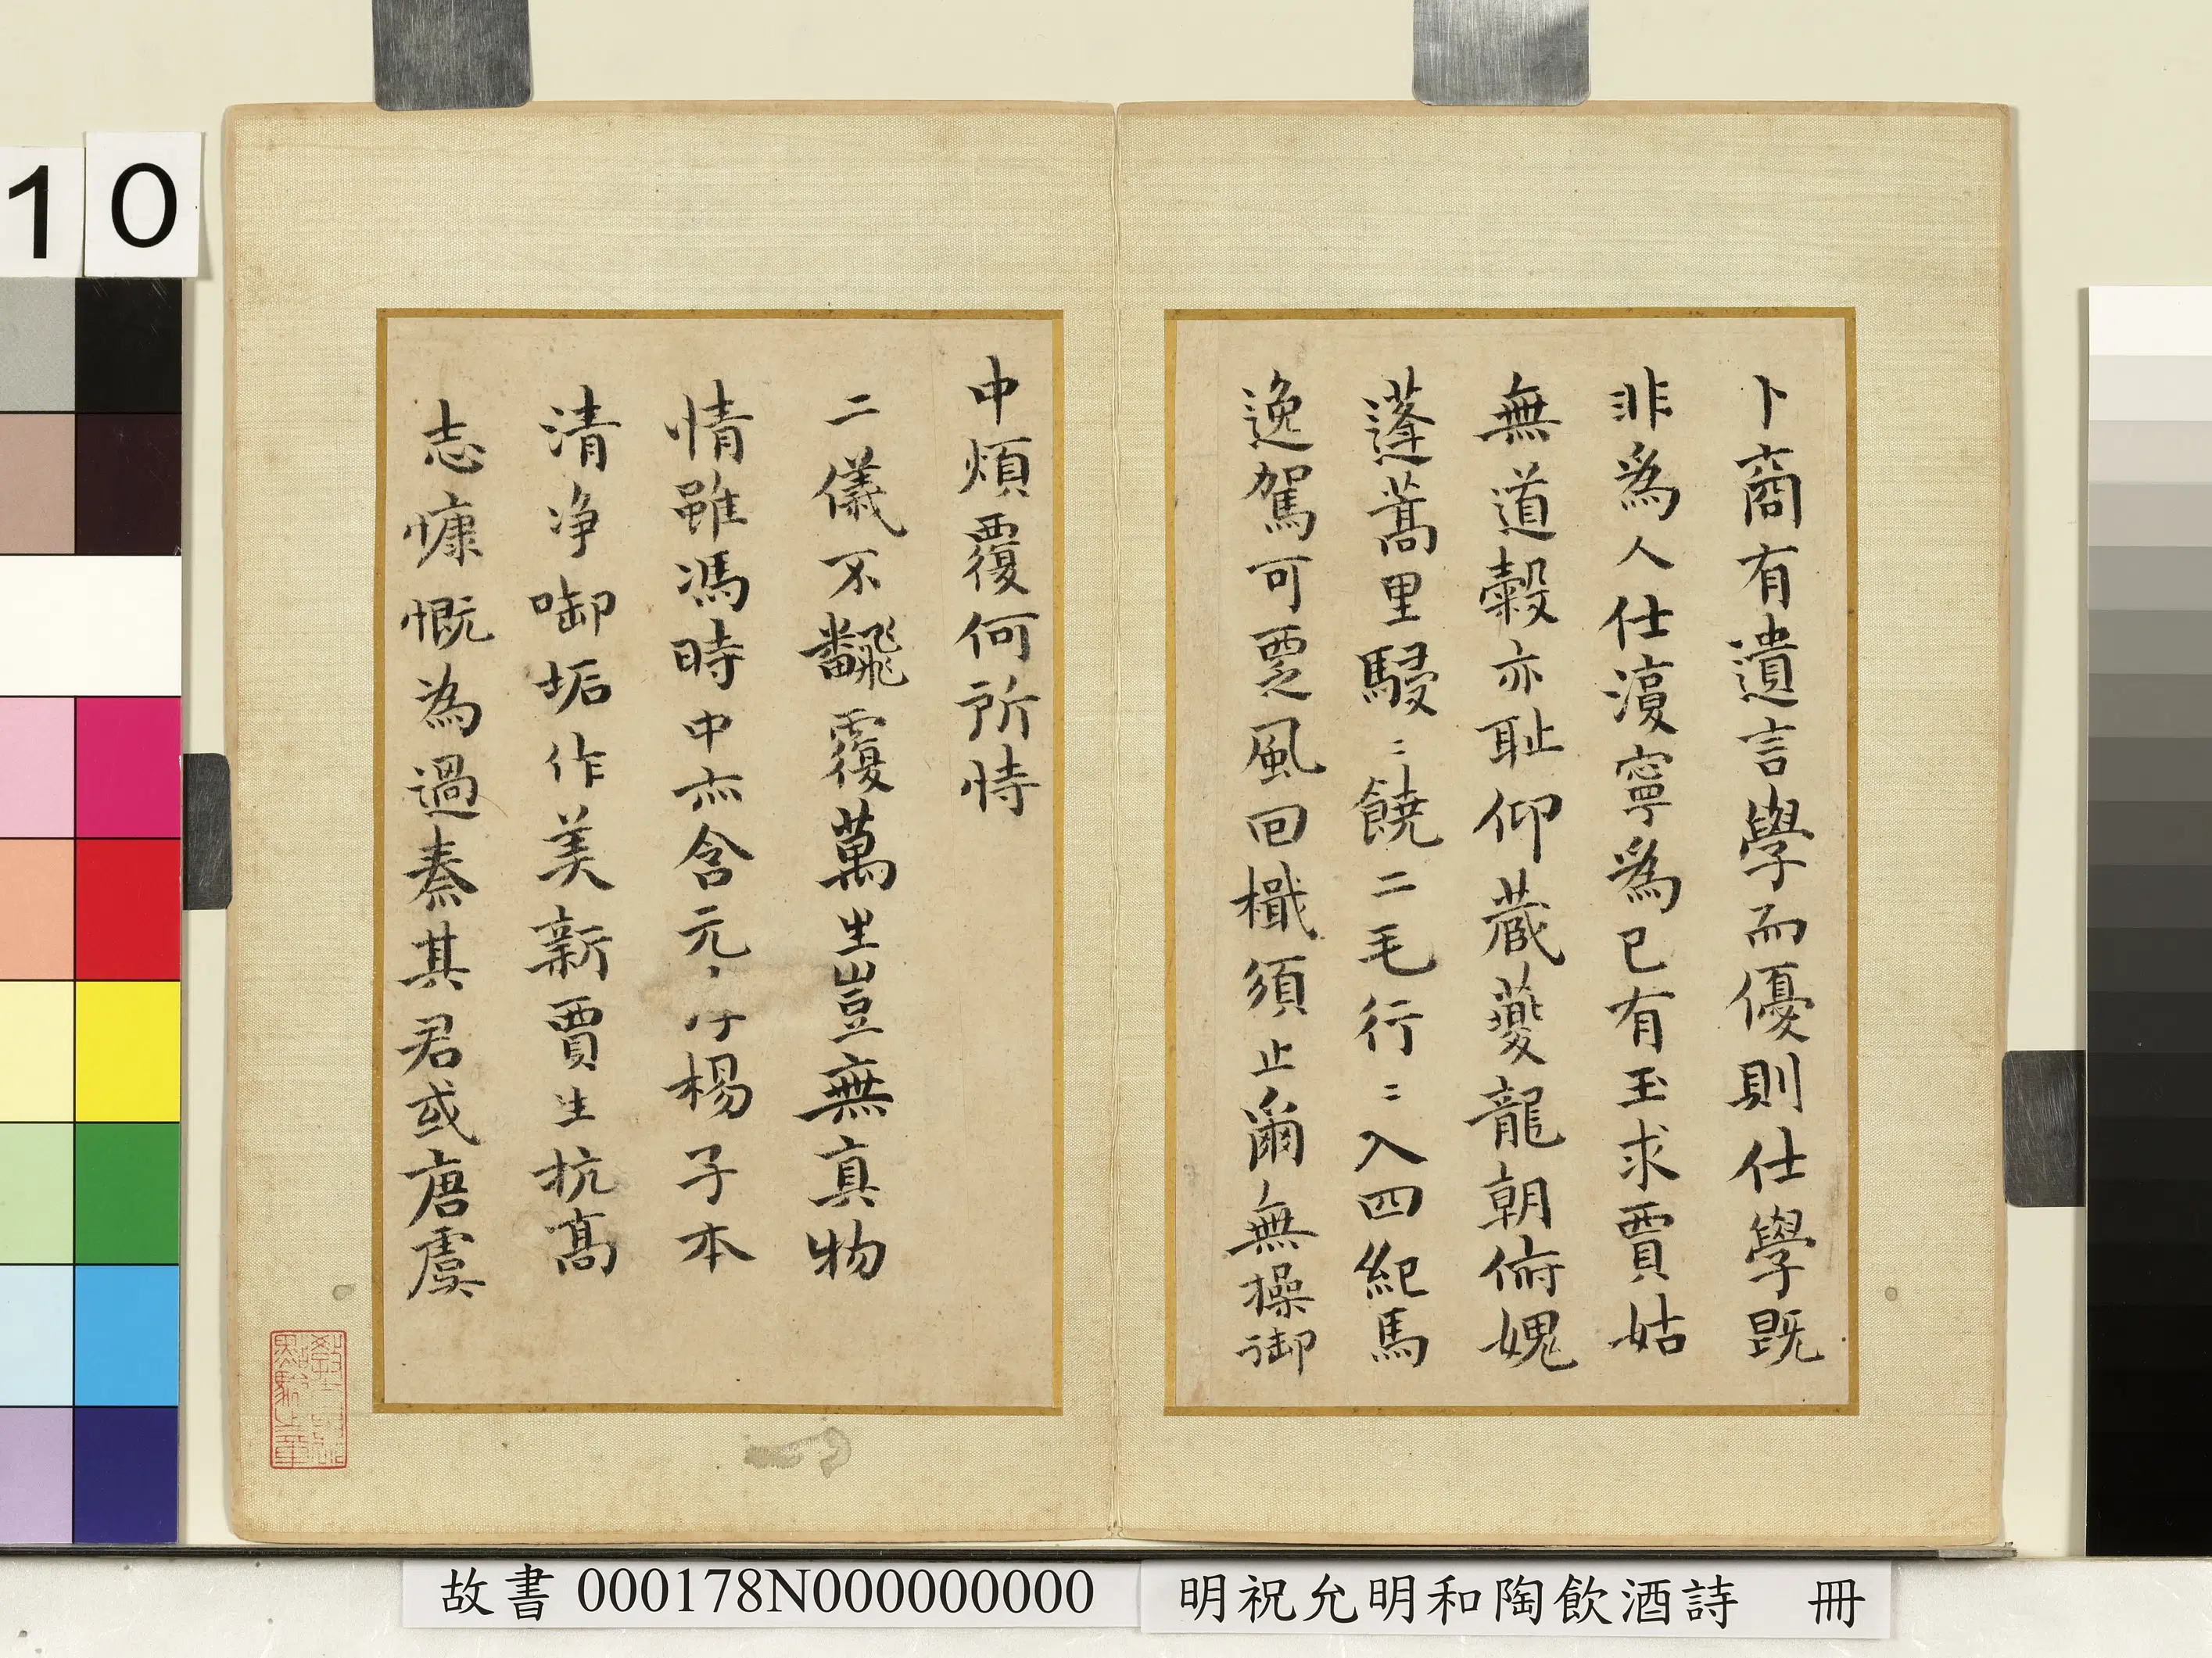 10
卜商有遺言學而優則仕學既
非爲人仕復寧爲已有玉求賈姑
無道穀亦耻仰蔵夔龍朝俯媿
蓬蒿里駸〻饒二毛行〻入四紀馬
逸駕可覂風回檝須止爾無操御
中煩覆何所恃
二儀不飜覆萬生豈無真物
情雖馮時中亦含元楊子本
清净啣垢作美新賈生抗髙
志慷慨為過秦其君或唐虞
故書 000178N000000000
明祝允明和陶飲酒詩 冊